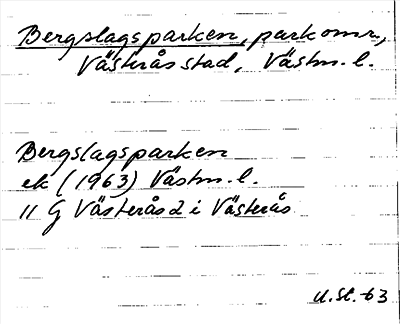 Bergslagsparken, parkomr.,
Västerås stad, Västm. l.
Bergslagsparken
ek (1963) Västm. l.
11 G Västerås d i Västerås
U. St. -63